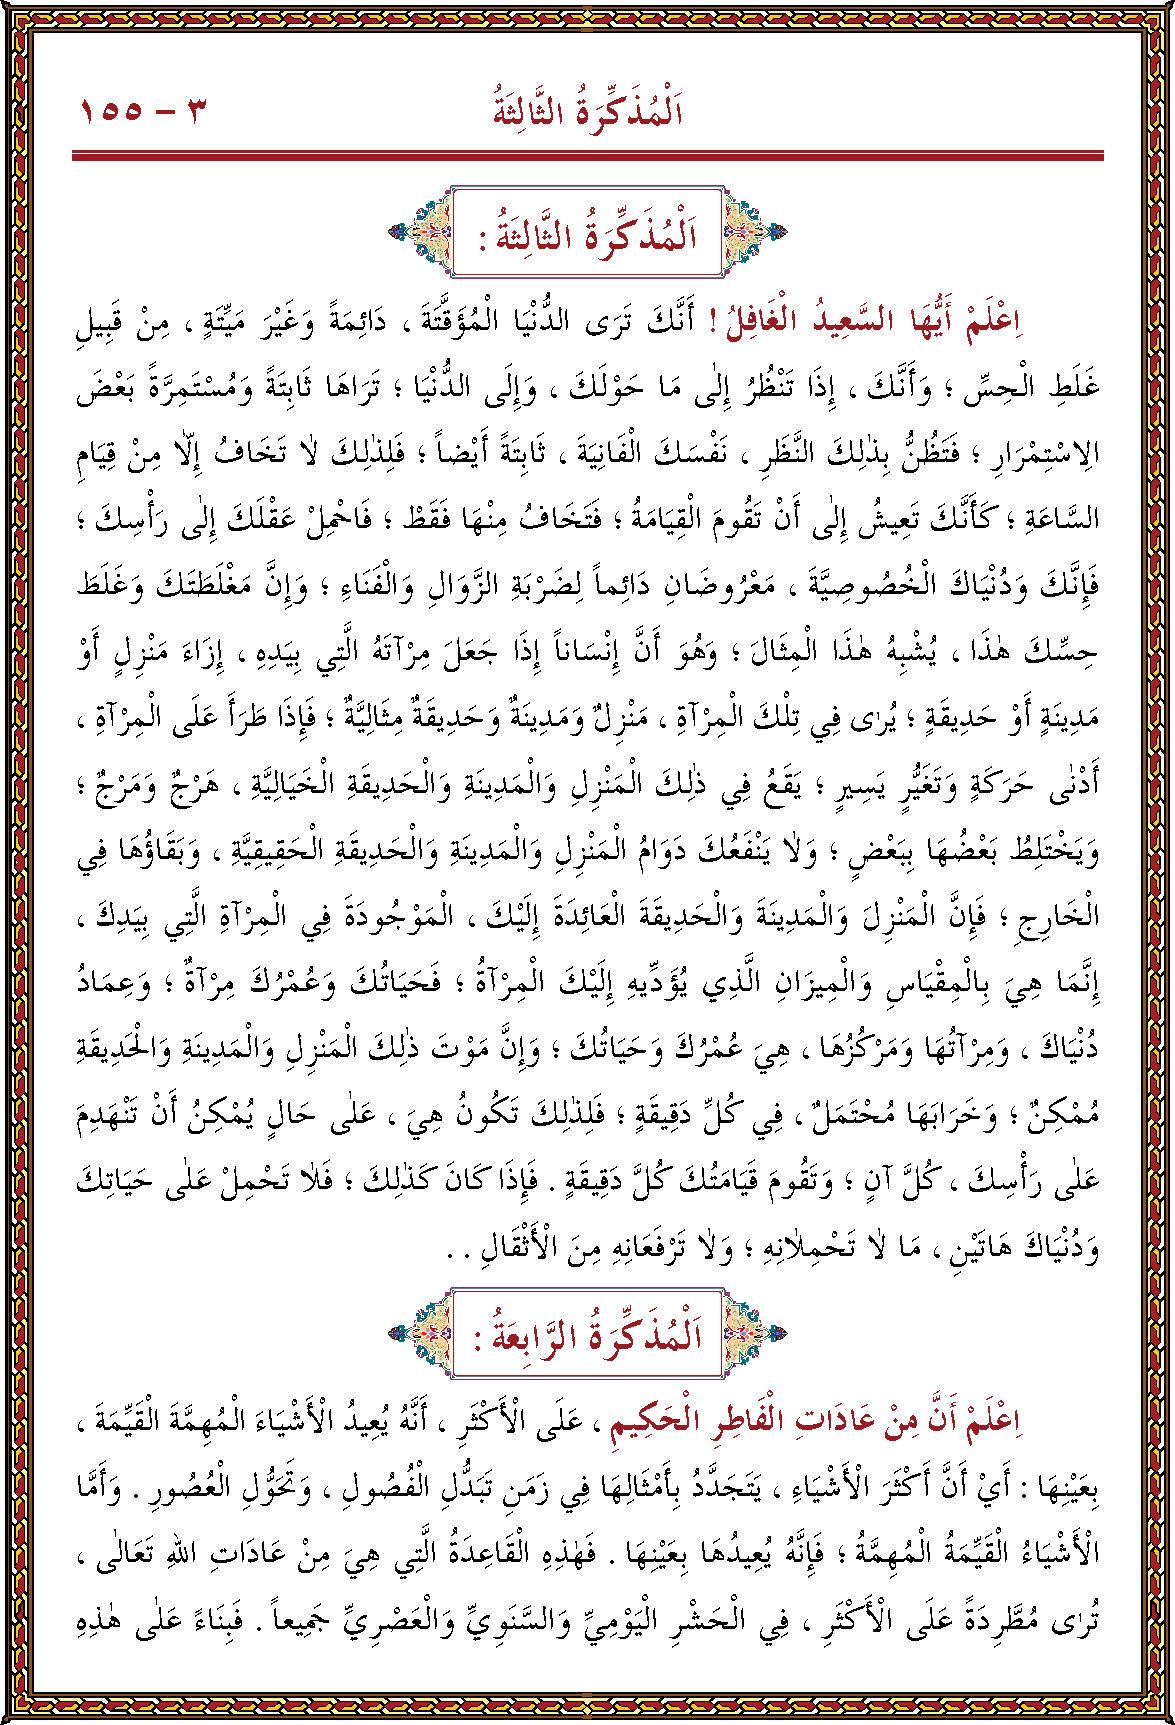 اَلْمُذَكِّرَةُ الثَّالِثَةُ
٣ – ١٥٥
اَلْمُذَكِّرَةُ الثَّالِثَةُ :
اِعْلَمْ أَيُّهَا السَّعِيدُ الْغَافِلُ ! أَنَّكَ تَرَى الدُّنْيَا الْمُؤَقَّتَةَ ، دَائِمَةً وَغَيْرَ مَيِّتَةٍ ، مِنْ قَبِيلِ
غَلَطِ الْحِسِّ ؛ وَأَنَّكَ ، إِذَا تَنْظُرُ إِلٰى مَا حَوْلَكَ ، وَإِلَى الدُّنْيَا ؛ تَرَاهَا ثَابِتَةً وَمُسْتَمِرَّةً بَعْضَ
الِاسْتِمْرَارِ ؛ فَتَظُنُّ بِذٰلِكَ النَّظَرِ ، نَفْسَكَ الْفَانِيَةَ ، ثَابِتَةً أَيْضاً ؛ فَلِذٰلِكَ لَا تَخَافُ إِلَّا مِنْ قِيَامِ
السَّاعَةِ ؛ كَأَنَّكَ تَعِيشُ إِلٰى أَنْ تَقُومَ الْقِيَامَةُ ؛ فَتَخَافُ مِنْهَا فَقَطْ ؛ فَاجْمَعْ عَقْلَكَ إِلٰى رَأْسِكَ ؛
فَإِنَّكَ وَدُنْيَاكَ الْخُصُوصِيَّةَ ، مَعْرُوضَانِ دَائِماً لِضَرْبَةِ الزَّوَالِ وَالْفَنَاءِ ؛ وَإِنَّ مَغْلَطَتَكَ وَغَلَطَ
حِسِّكَ هٰذَا ، يُشْبِهُ هٰذَا الْمِثَالَ ؛ وَهُوَ أَنَّ إِنْسَاناً إِذَا جَعَلَ مِرْآتَهُ الَّتِي بِيَدِهِ ، إِزَاءَ مَنْزِلٍ أَوْ
مَدِينَةٍ أَوْ حَدِيقَةٍ ؛ يُرٰى فِي تِلْكَ الْمِرْآةِ ، مَنْزِلٌ وَمَدِينَةٌ وَحَدِيقَةٌ مِثَالِيَّةٌ ؛ فَإِذَا طَرَأَ عَلَى الْمِرْآةِ ،
أَدْنٰى حَرَكَةٍ وَتَغَيُّرٍ يَسِيرٍ ؛ يَقَعُ فِي ذٰلِكَ الْمَنْزِلِ وَالْمَدِينَةِ وَالْحَدِيقَةِ الْخَيَالِيَّةِ ، هَرْجٌ وَمَرْجٌ ؛
وَيَخْتَلِطُ بَعْضُهَا بِبَعْضٍ ؛ وَلَا يَنْفَعُكَ دَوَامُ الْمَنْزِلِ وَالْمَدِينَةِ وَالْحَدِيقَةِ الْحَقِيقِيَّةِ ، وَبَقَاؤُهَا فِي
الْخَارِجِ ؛ فَإِنَّ الْمَنْزِلَ وَالْمَدِينَةَ وَالْحَدِيقَةَ الْعَائِدَةَ إِلَيْكَ ، الْمَوْجُودَةَ فِي الْمِرْآةِ الَّتِي بِيَدِكَ ،
إِنَّمَا هِيَ بِالْمِقْيَاسِ وَالْمِيزَانِ الَّذِي يُؤَدِّيهِ إِلَيْكَ الْمِرْآةُ ؛ فَحَيَاتُكَ وَعُمْرُكَ مِرْآةٌ ؛ وَعِمَادُ
دُنْيَاكَ ، وَمِرْآتُهَا وَمَرْكَزُهَا ، هِيَ عُمْرُكَ وَحَيَاتُكَ ؛ وَإِنَّ مَوْتَ ذٰلِكَ الْمَنْزِلِ وَالْمَدِينَةِ وَالْحَدِيقَةِ
مُمْكِنٌ ؛ وَخَرَابَهَا مُحْتَمَلٌ ، فِي كُلِّ دَقِيقَةٍ ؛ فَلِذٰلِكَ تَكُونُ هِيَ ، عَلٰى حَالٍ يُمْكِنُ أَنْ تَنْهَدِمَ
عَلٰى رَأْسِكَ ، كُلَّ آنٍ ؛ وَتَقُومَ قِيَامَتُكَ كُلَّ دَقِيقَةٍ . فَإِذَا كَانَ كَذٰلِكَ ؛ فَلَا تَحْمِلْ عَلٰى حَيَاتِكَ
وَدُنْيَاكَ هَاتَيْنِ ، مَا لَا تَحْمِلَانِهِ ؛ وَلَا تَرْفَعَانِهِ مِنَ الْأَثْقَالِ . .
اَلْمُذَكِّرَةُ الرَّابِعَةُ :
اِعْلَمْ أَنَّ مِنْ عَادَاتِ الْفَاطِرِ الْحَكِيمِ ، عَلَى الْأَكْثَرِ ، أَنَّهُ يُعِيدُ الْأَشْيَاءَ الْمُهِمَّةَ الْقَيِّمَةَ ،
بِعَيْنِهَا : أَيْ أَنَّ أَكْثَرَ الْأَشْيَاءِ ، يَتَجَدَّدُ بِأَمْثَالِهَا فِي زَمَنِ تَبَدُّلِ الْفُصُولِ ، وَتَحَوُّلِ الْعُصُورِ . وَأَمَّا
الْأَشْيَاءُ الْقَيِّمَةُ الْمُهِمَّةُ ؛ فَإِنَّهُ يُعِيدُهَا بِعَيْنِهَا . فَهٰذِهِ الْقَاعِدَةُ الَّتِي هِيَ مِنْ عَادَاتِ اللهِ تَعَالٰى ،
تُرٰى مُطَّرِدَةً عَلَى الْأَكْثَرِ ، فِي الْحَشْرِ الْيَوْمِيِّ وَالسَّنَوِيِّ وَالْعَصْرِيِّ جَمِيعاً . فَبِنَاءً عَلٰى هٰذِهِ